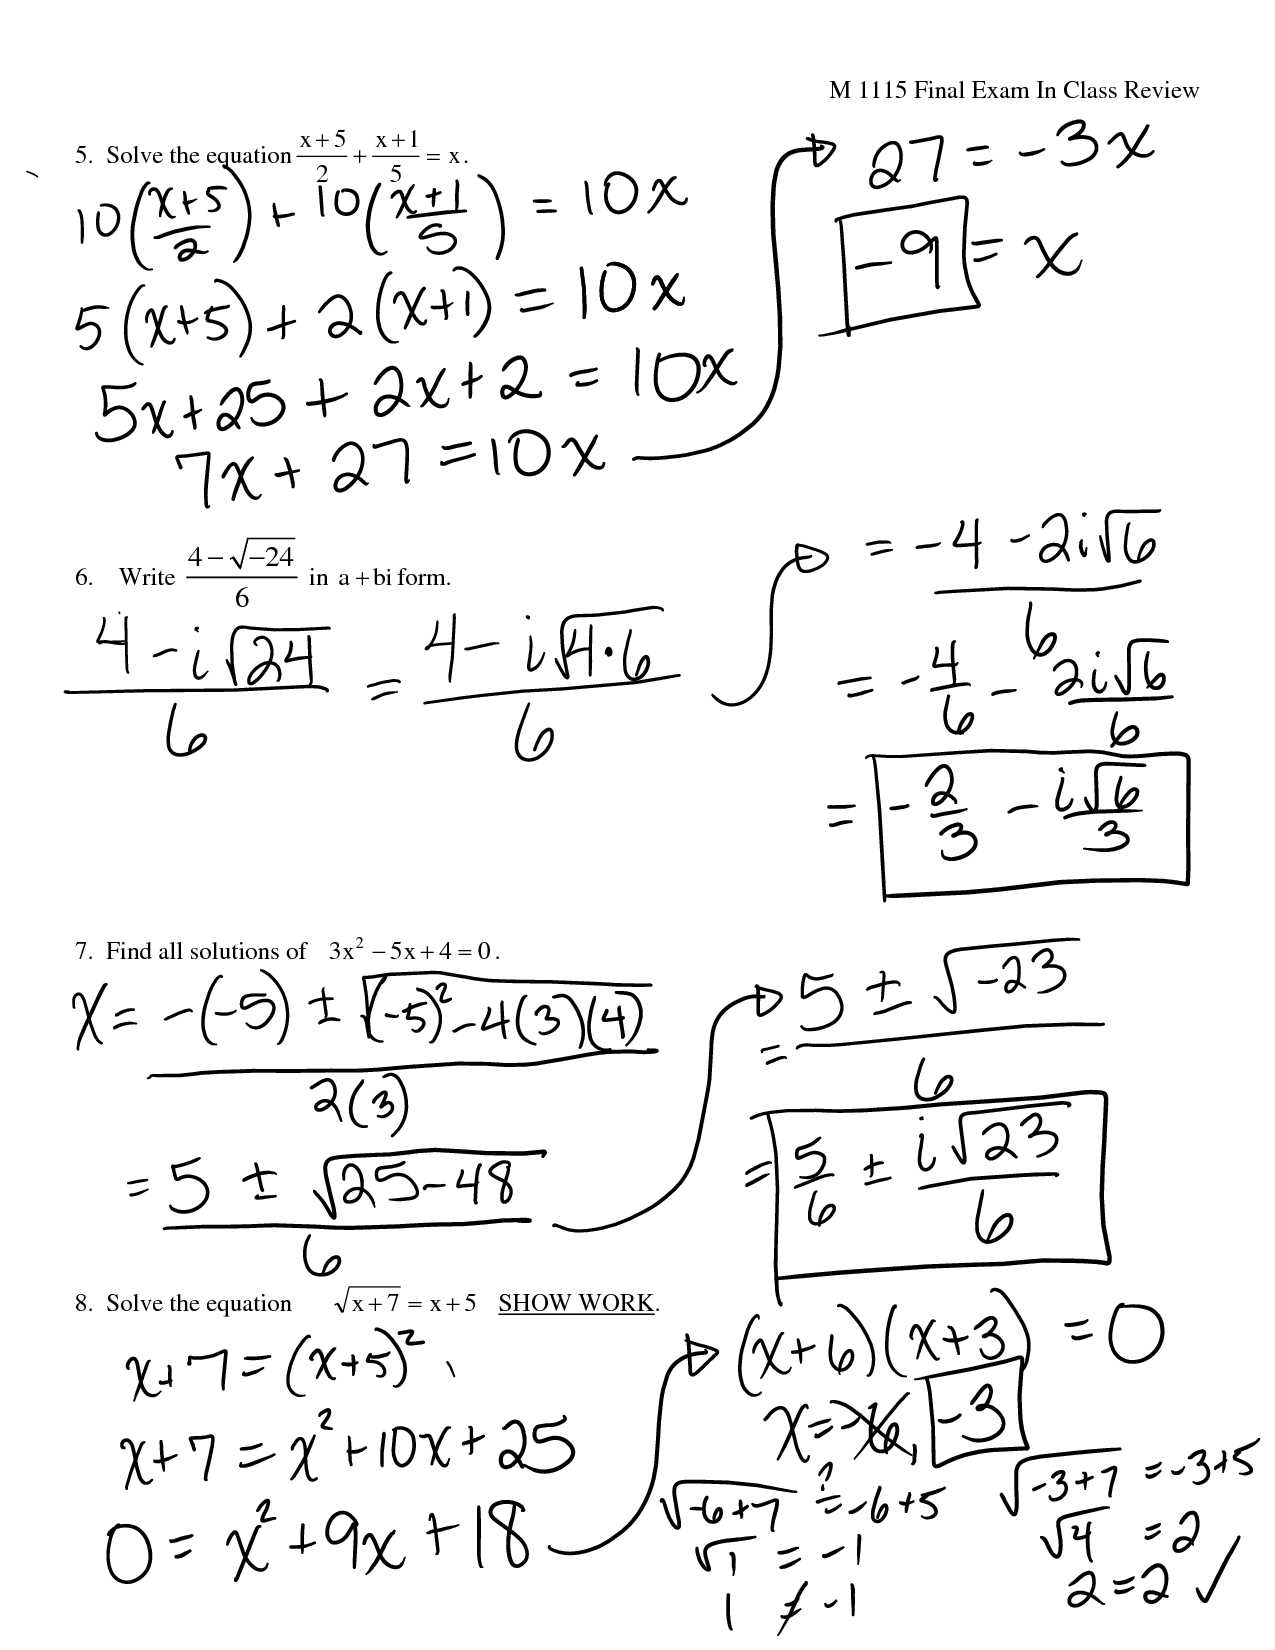 M 1115 Final Exam In Class Review
5. Solve the equation (x+5)/2 + (x+1)/5 = x.
10((x+5)/2) + 10((x+1)/5) = 10x
5(x+5) + 2(x+1) = 10x
5x+25 + 2x+2 = 10x
7x + 27 = 10x
27 = -3x
-9 = x
6. Write (4 − √−24)/6 in a + bi form.
(4 - i√24)/6 = (4 - i√(4·6))/6
= (-4 - 2i√6)/6
= -4/6 - 2i√6/6
= -2/3 - i√6/3
7. Find all solutions of 3x² − 5x + 4 = 0.
x = (-(-5) ± √((-5)² - 4(3)(4)))/(2(3))
= (5 ± √(25-48))/6
= (5 ± √-23)/6
= 5/6 ± i√23/6
8. Solve the equation √(x+7) = x+5 SHOW WORK.
x+7 = (x+5)²
x+7 = x² + 10x + 25
0 = x² + 9x + 18
(x+6)(x+3) = 0
x = -6, -3
√(-6+7) ?= -6+5
√1 = -1
1 ≠ -1
√(-3+7) = -3+5
√4 = 2
2 = 2 ✓